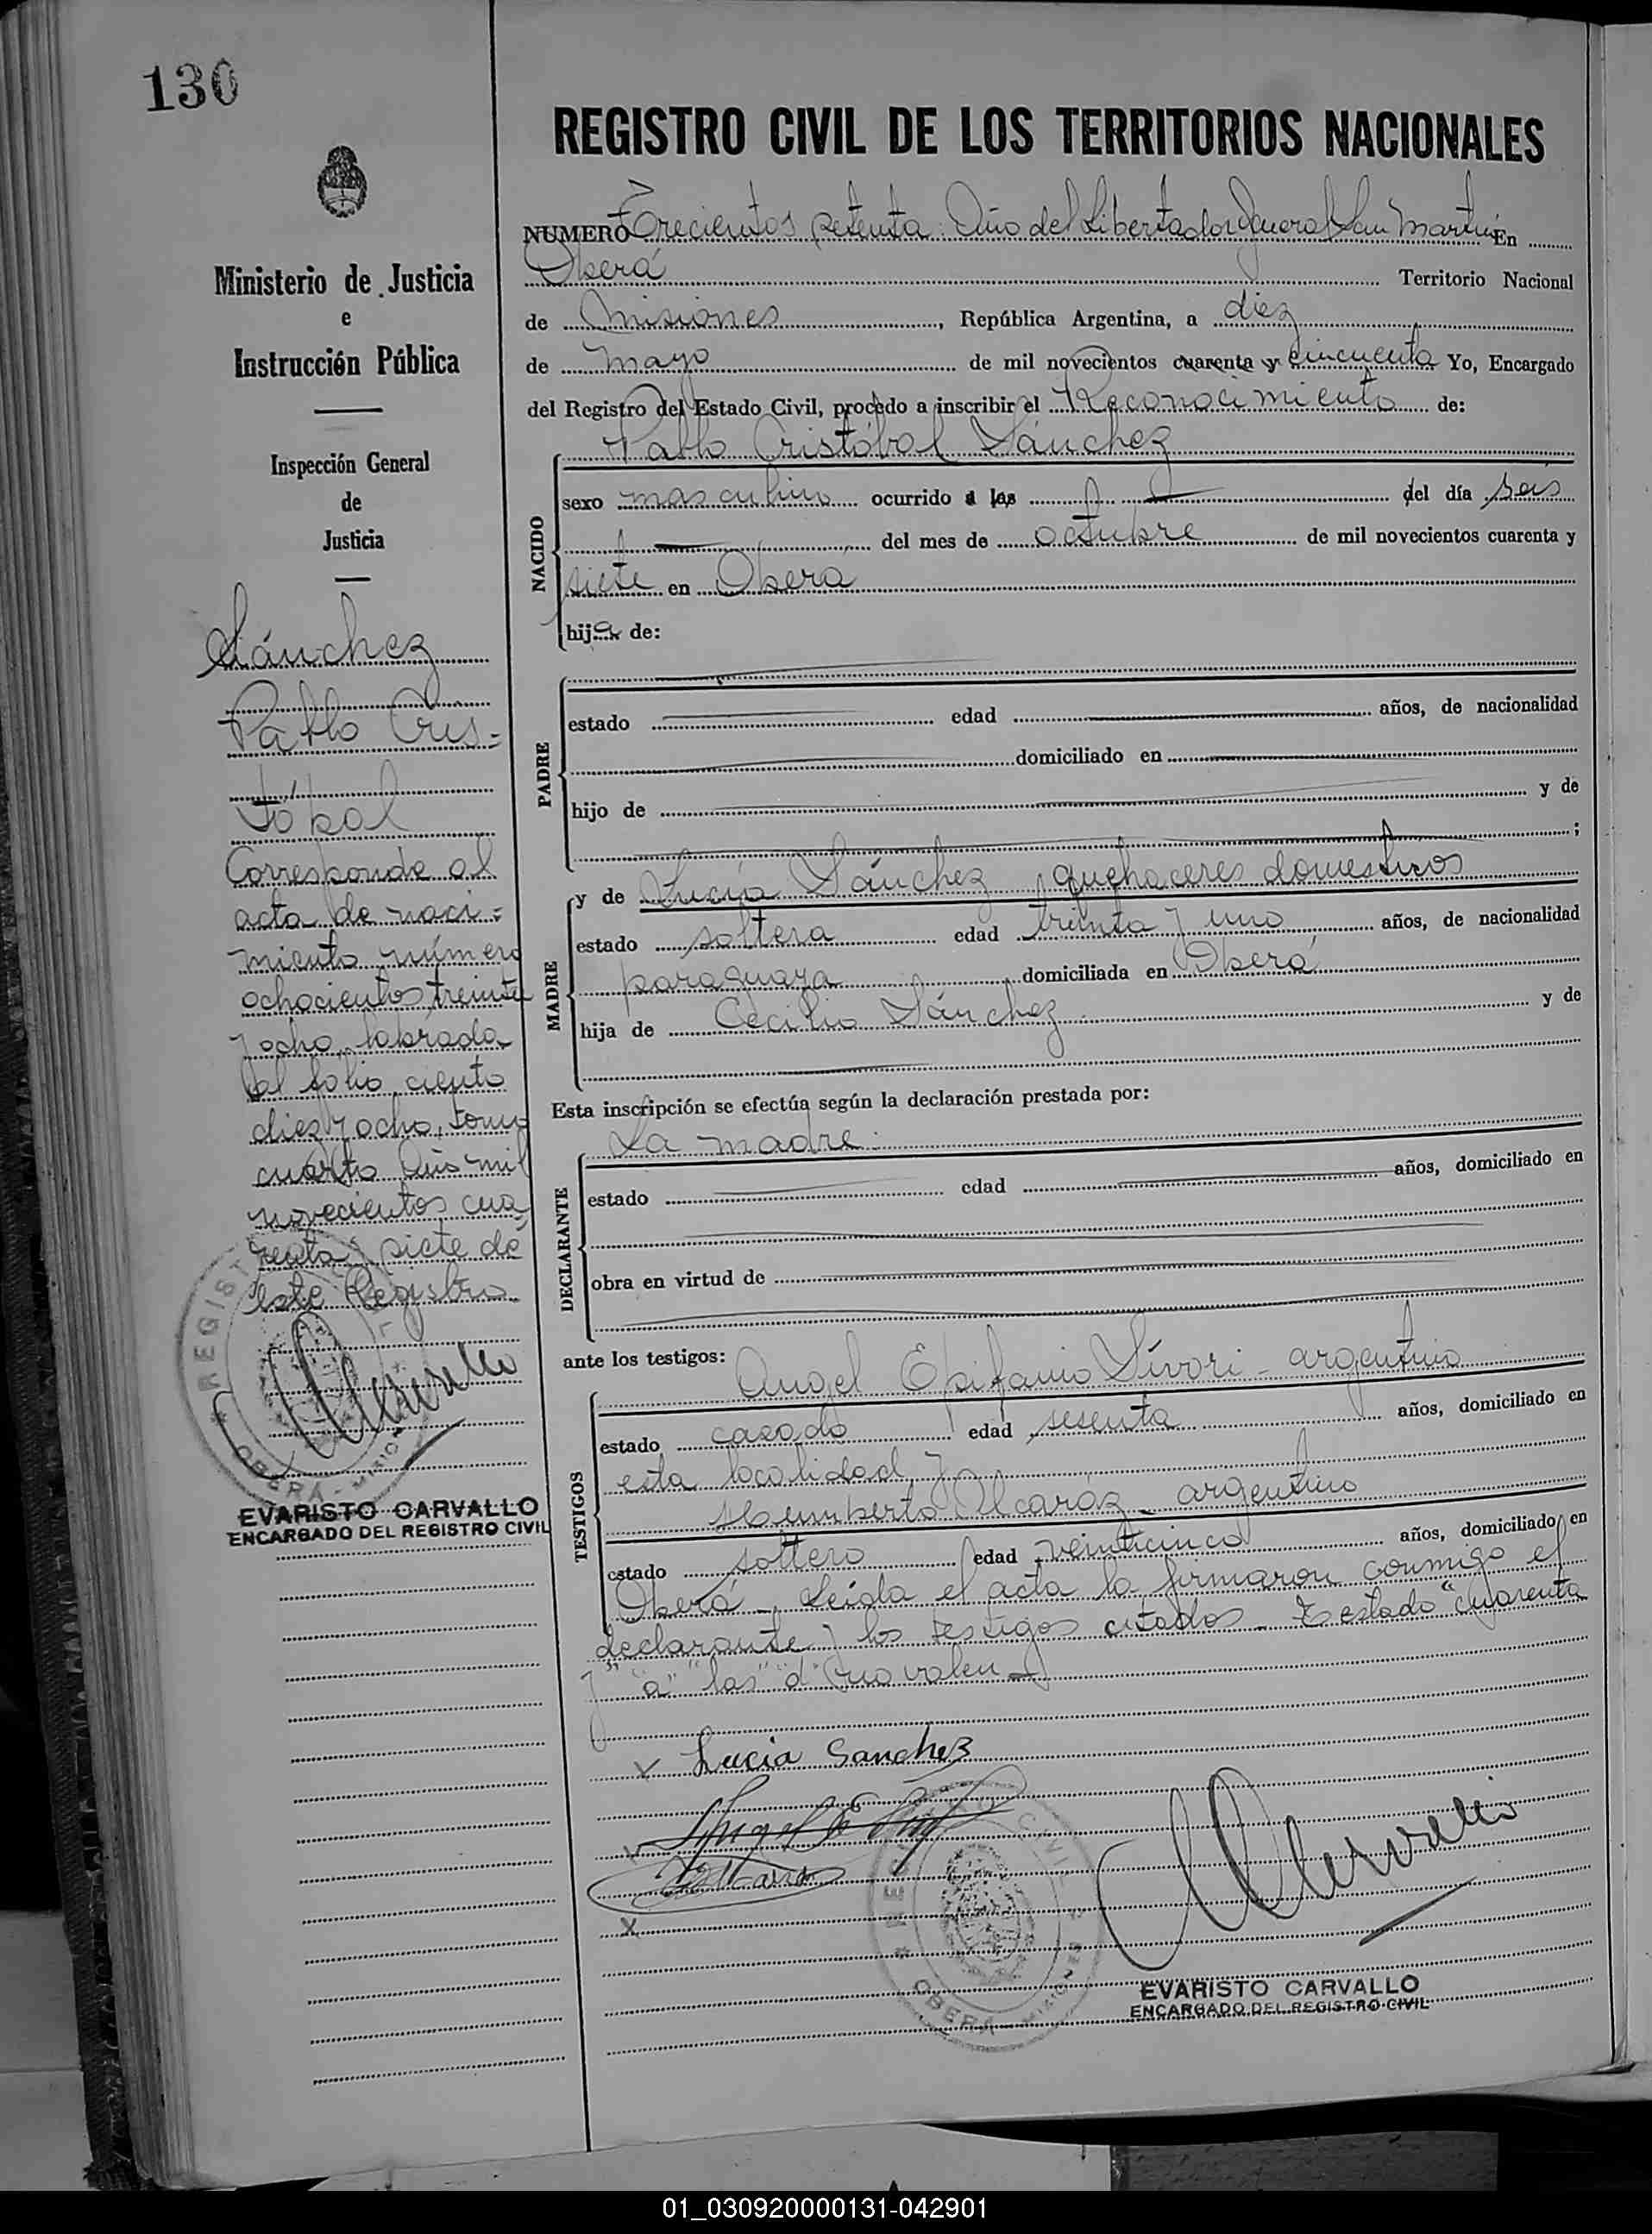 130
Ministerio de Justicia
e
Instrucción Pública
Inspección General
de
Justicia
Sánchez
Pablo Cris=
tóbal
Corresponde al
acta de naci=
miento número
ochocientos treinta
y ocho, labrada
al folio ciento
diez y ocho, tomo
cuarto Año mil
novecientos cua
renta y siete de
este Registro.
REGIST
OBERÁ - MISIO
EVARISTO CARVALLO
ENCARGADO DEL REGISTRO CIVIL
REGISTRO CIVIL DE LOS TERRITORIOS NACIONALES
NUMERO Trecientos setenta. Año del Libertador General San Martín En
Oberá Territorio Nacional
de Misiones, República Argentina, a diez
de mayo de mil novecientos cuarenta y cincuenta Yo, Encargado
del Registro del Estado Civil, procedo a inscribir el Reconocimiento de:
Pablo Cristóbal Sánchez
NACIDO
sexo masculino ocurrido a las del día seis
del mes de octubre de mil novecientos cuarenta y
siete en Oberá
hijo de:
PADRE
estado edad años, de nacionalidad
domiciliado en
hijo de y de
;
MADRE
y de Lucía Sánchez, quehaceres domesticos
estado soltera edad treinta y uno años, de nacionalidad
paraguaya domiciliada en Oberá
hija de Cecilio Sánchez y de
Esta inscripción se efectúa según la declaración prestada por:
La madre.
DECLARANTE
estado edad años, domiciliado en
obra en virtud de
ante los testigos:
TESTIGOS
Angel Epifanio Sívori - argentino
estado casado edad sesenta años, domiciliado en
esta localidad y
Humberto Alcaráz - argentino
estado soltero edad veinticinco años, domiciliado en
Oberá - Leída el acta la firmaron conmigo el
declarante y los testigos citados - Testado "cuarenta
y" "a" "las" "d" no valen -
x Lucia Sanchez
x
CIVIL
OBERÁ - MISIONES
EVARISTO CARVALLO
ENCARGADO DEL REGISTRO CIVIL
01_030920000131-042901